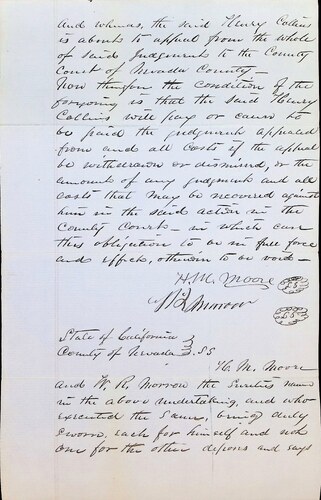 And whereas, the said Henry Collins
is about to appeal from the whole
of said Judgment to the County
Court of Nevada County—
Now therefore the condition of the
forgoing is that the said Henry
Collins will pay or cause to
be paid the judgment appealed
from and all costs if the appeal
be withdrawn or dismissed, or the
amount of any judgment and all
costs that may be recovered against
him in the said action in the
County Court— in which case
this obligation to be in full force
and effect, otherwise to be void—
H. M. Moore L.S
Morrow L.S
State of California
County of Nevada } SS
H. M. Moore
and W. R. Morrow the Sureties name
in the above undertaking, and who
executed the same, being duly
sworn, each for himself and not
one for the other deposes and says